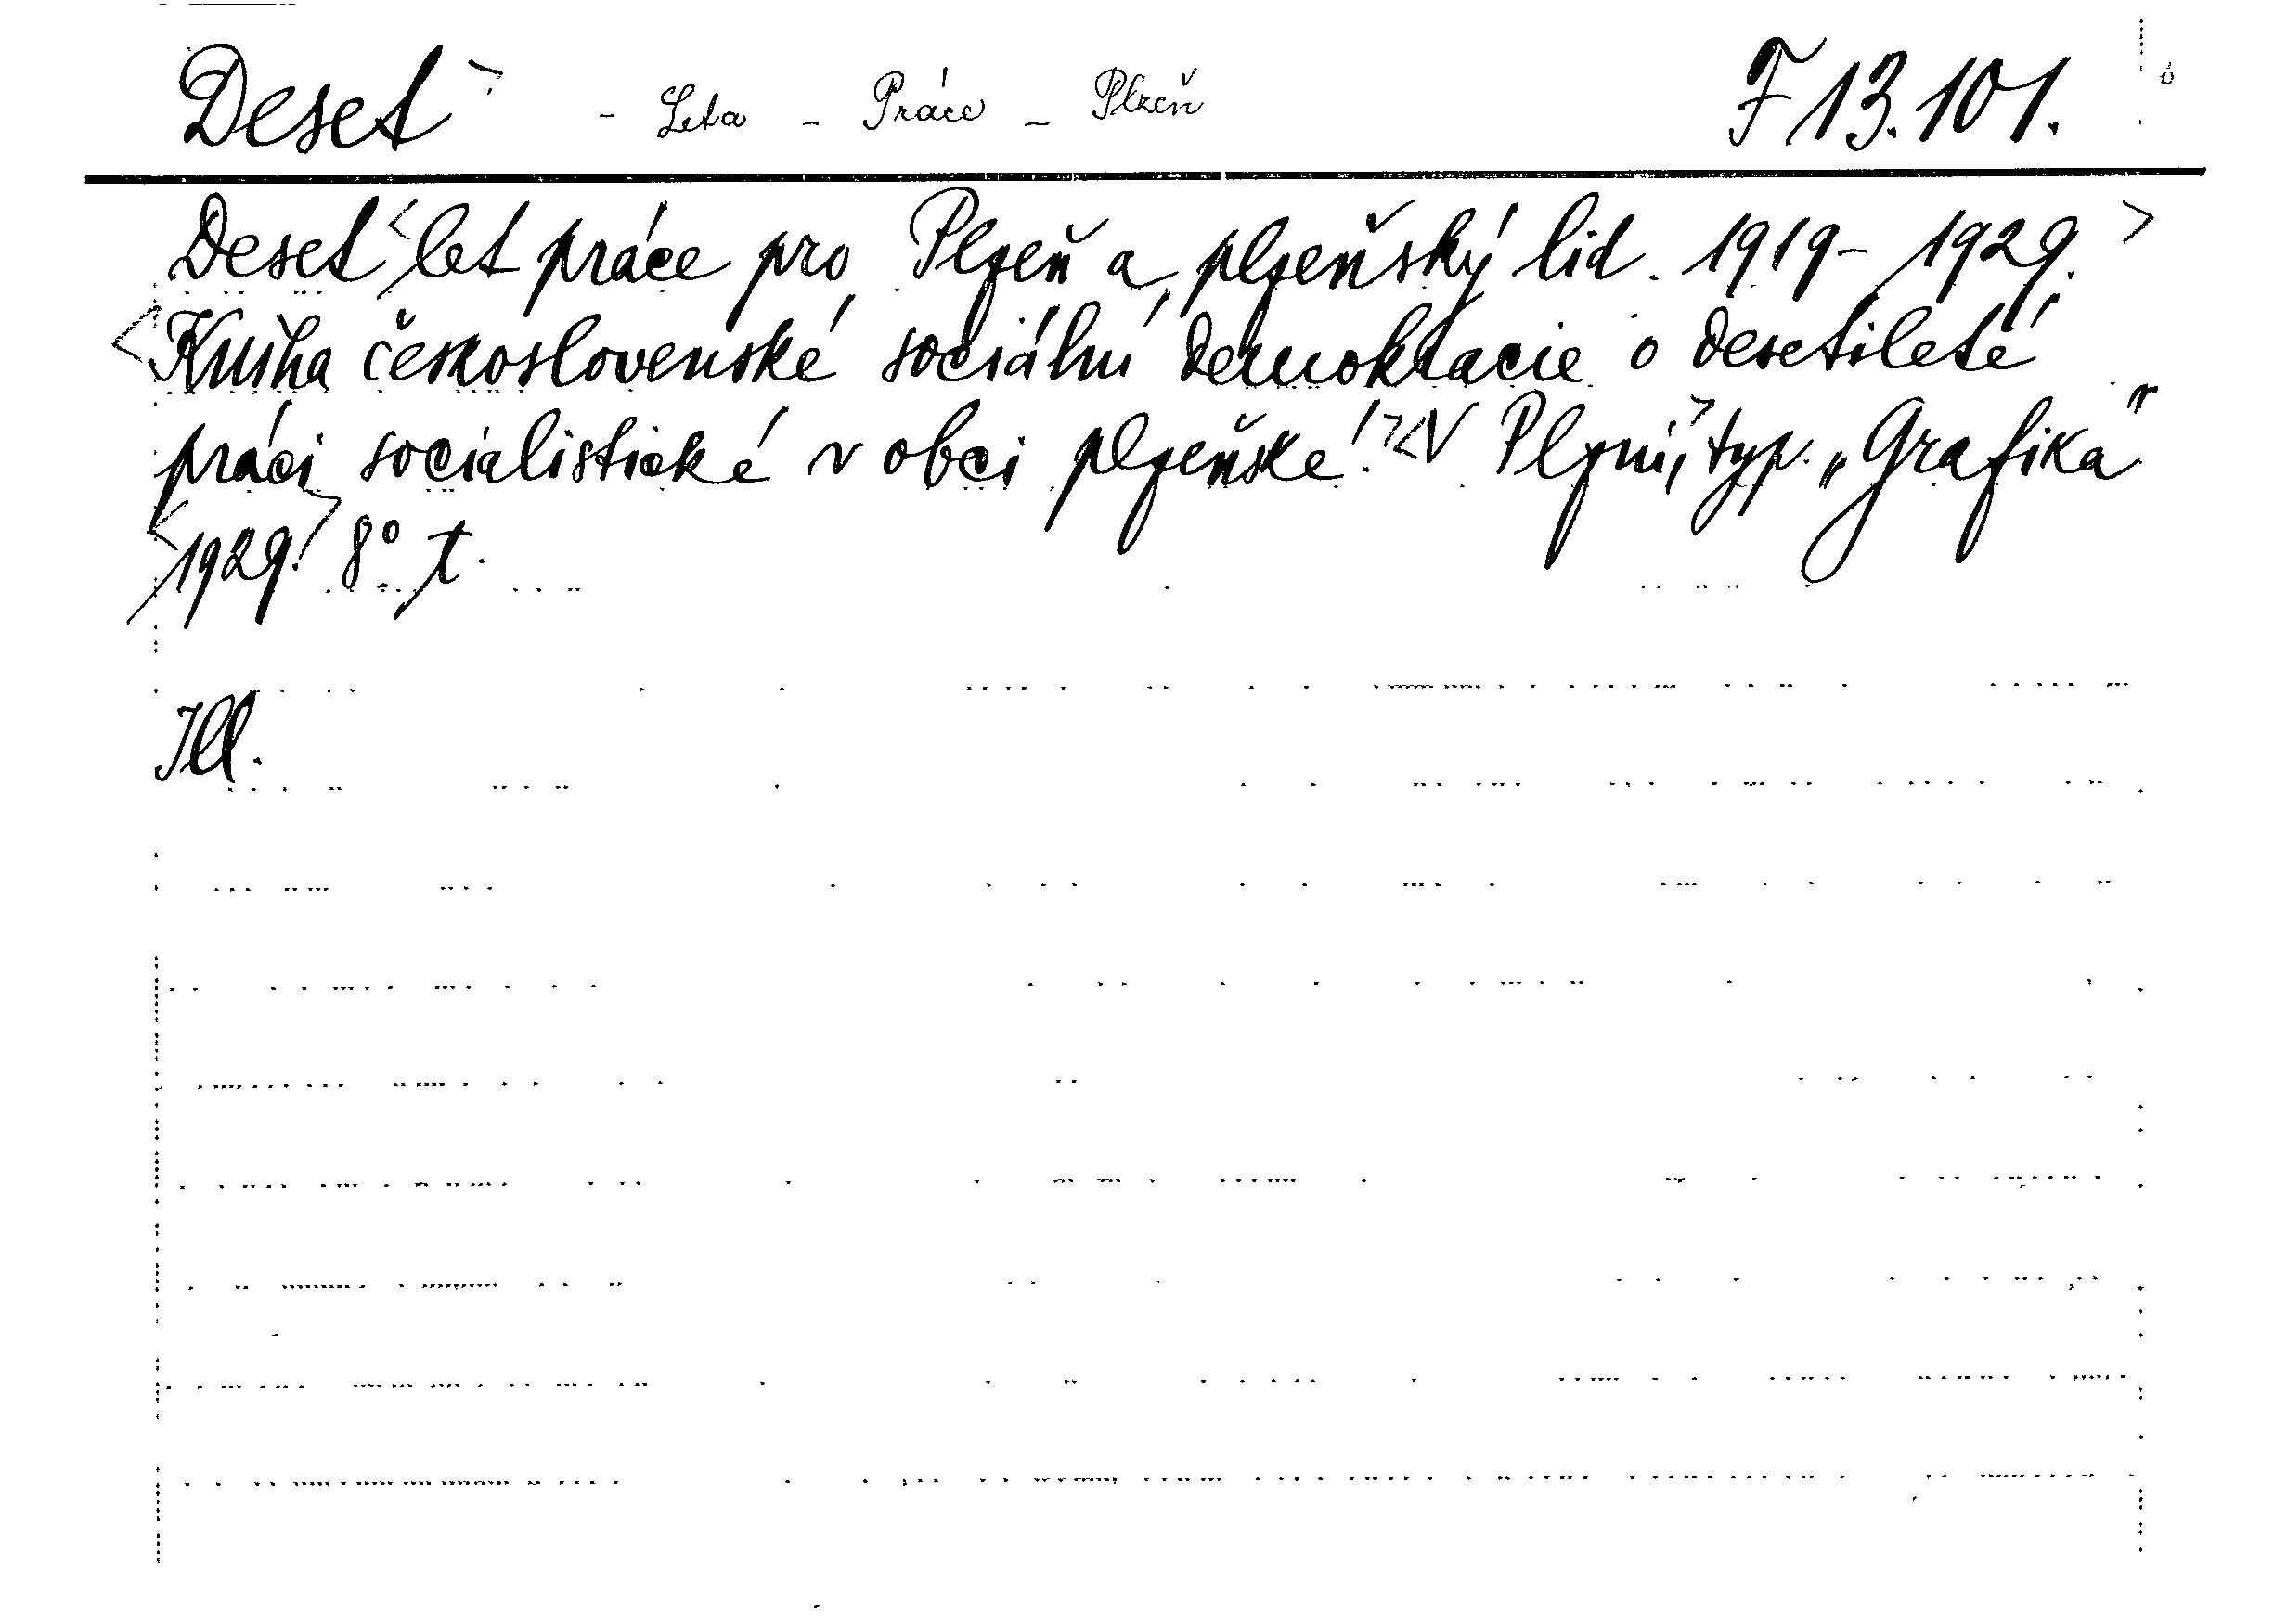 Deset - Leta - Práce - Plzeň F 13.101.
Deset let práce pro Plzeň a plzeňský lid. 1919-1929.
Kniha československé sociální demokracie o desetileté
práci socialistické v obci plzeňské. V Plzni, typ. „Grafika"
1929. 8° t.
Ill.